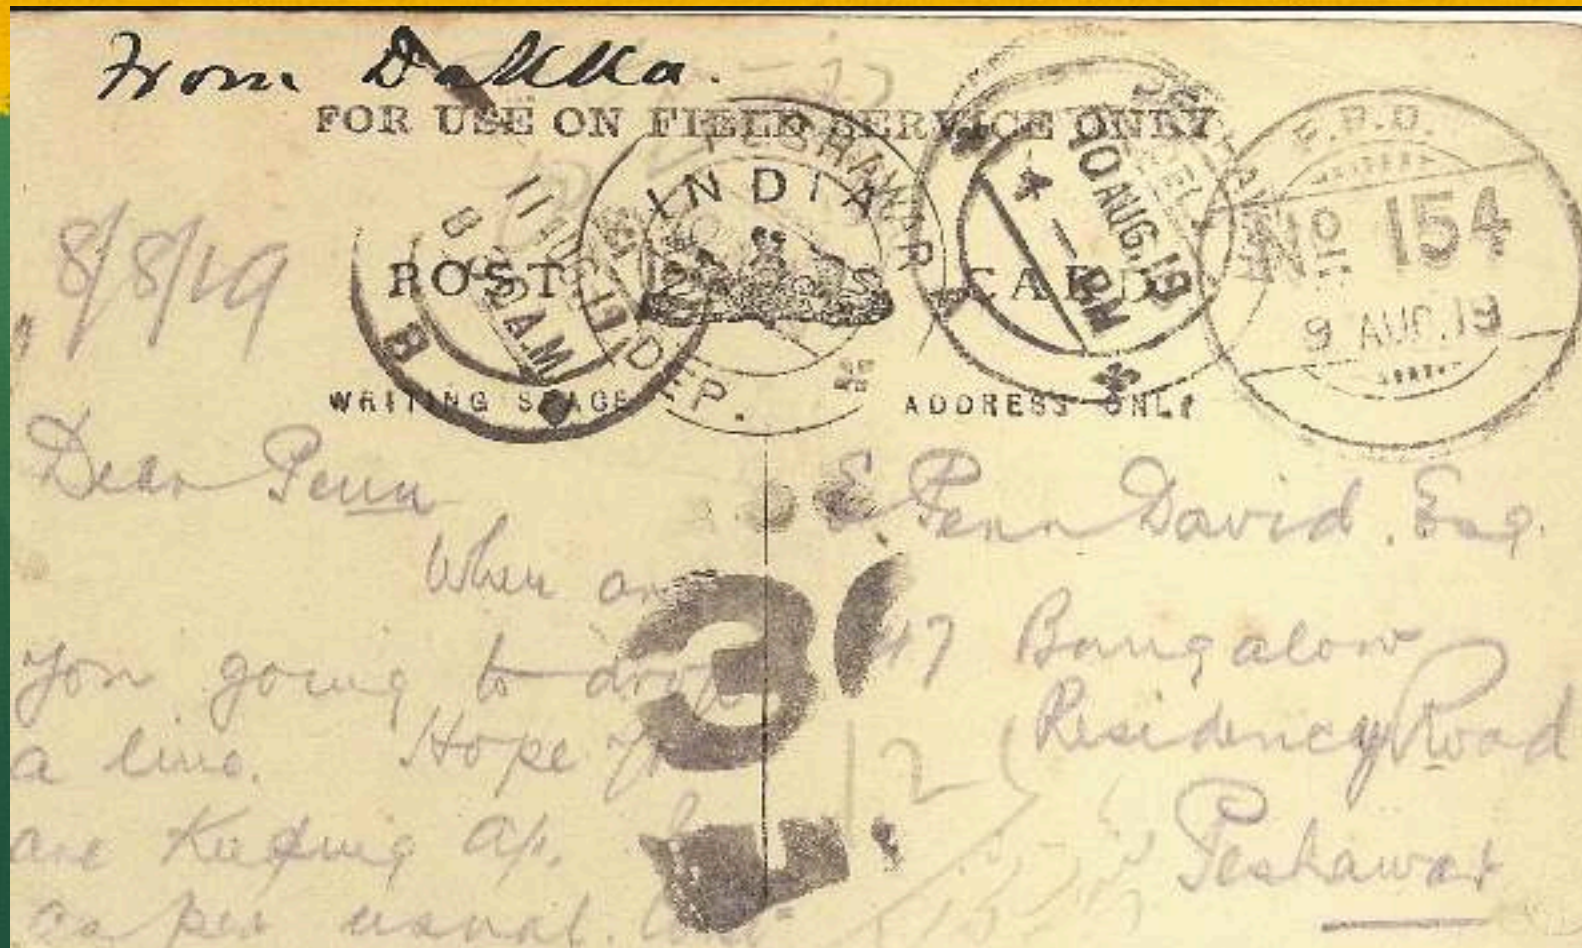 From Dakka.
FOR USE ON FIELD SERVICE ONLY
INDIA
POST CARD
8/8/19
PESHAWAR
DEP.
B
11 AUG. 19
8 A.M
10 AUG. 19
4 — PM
F.P.O.
No 154
9 AUG. 19
WRITING SPACE
ADDRESS ONLY
Dear Penn
When are
you going to drop
a line. Hope you
are keeping up.
as per usual.
E. Penn David. Esq.
47 Bungalow
Residency Road
Peshawar
12